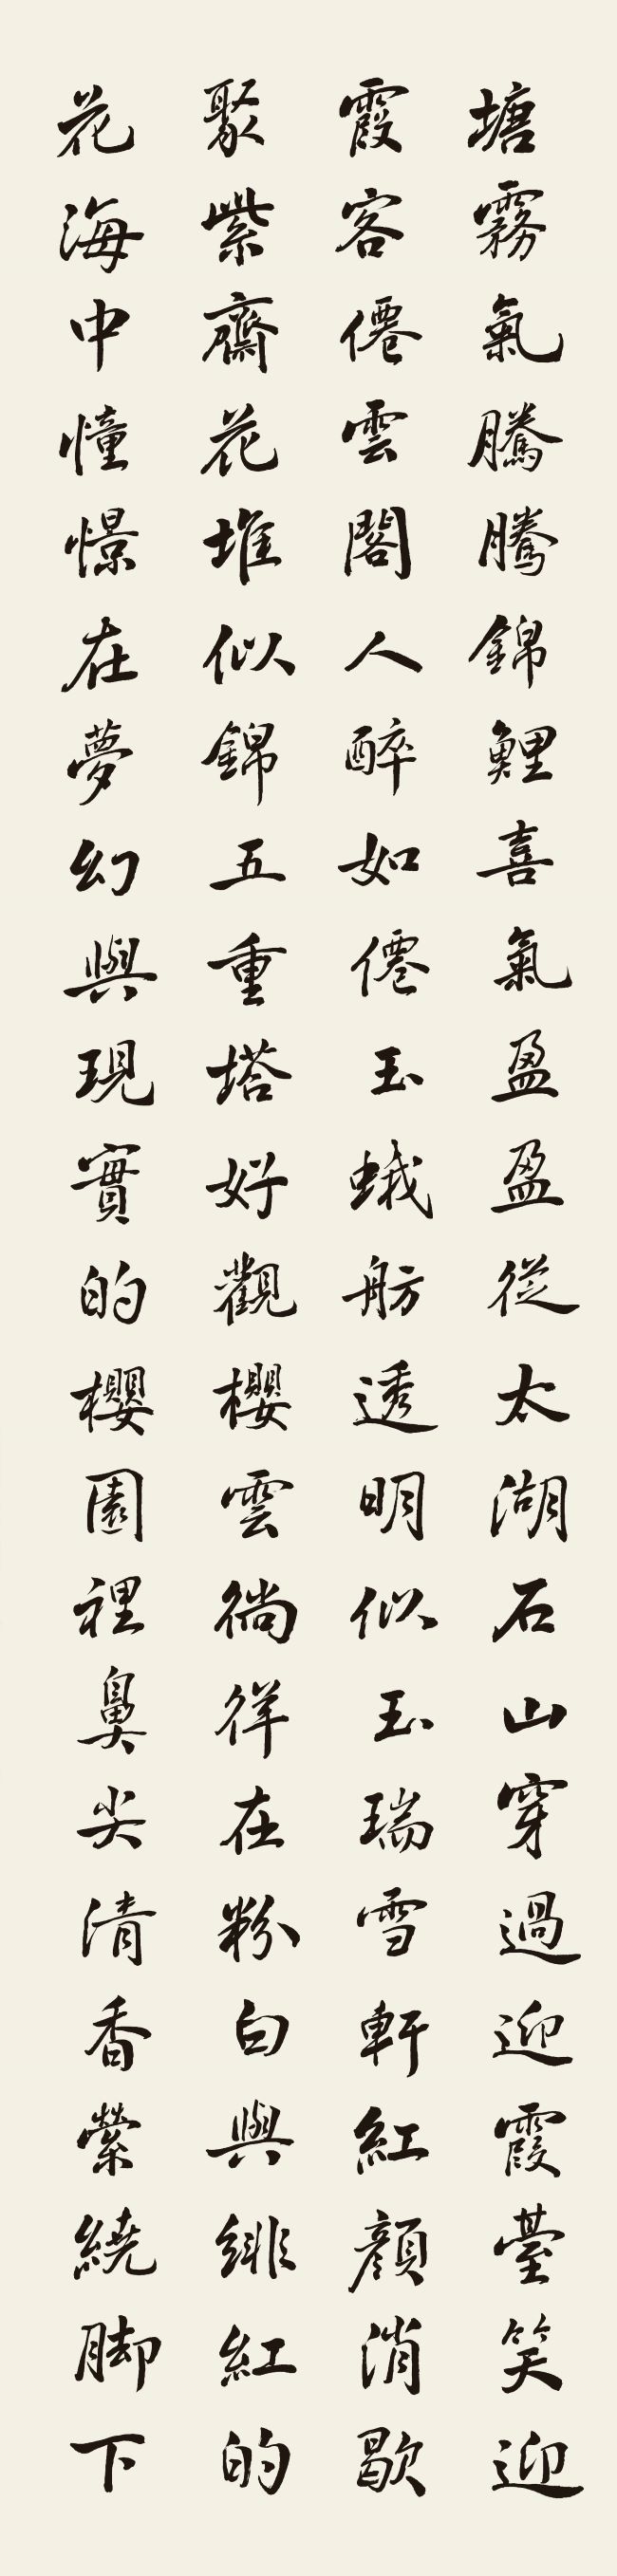 塘霧氣騰騰錦鯉喜氣盈盈從太湖石山穿過迎霞臺笑迎
霞客僊雲閣人醉如僊玉蛾舫透明似玉瑞雪軒紅顏消歇
聚紫齋花堆似錦五重塔好觀櫻雲徜徉在粉白與緋紅的
花海中憧憬在夢幻與現實的櫻園裡鼻尖清香縈繞腳下